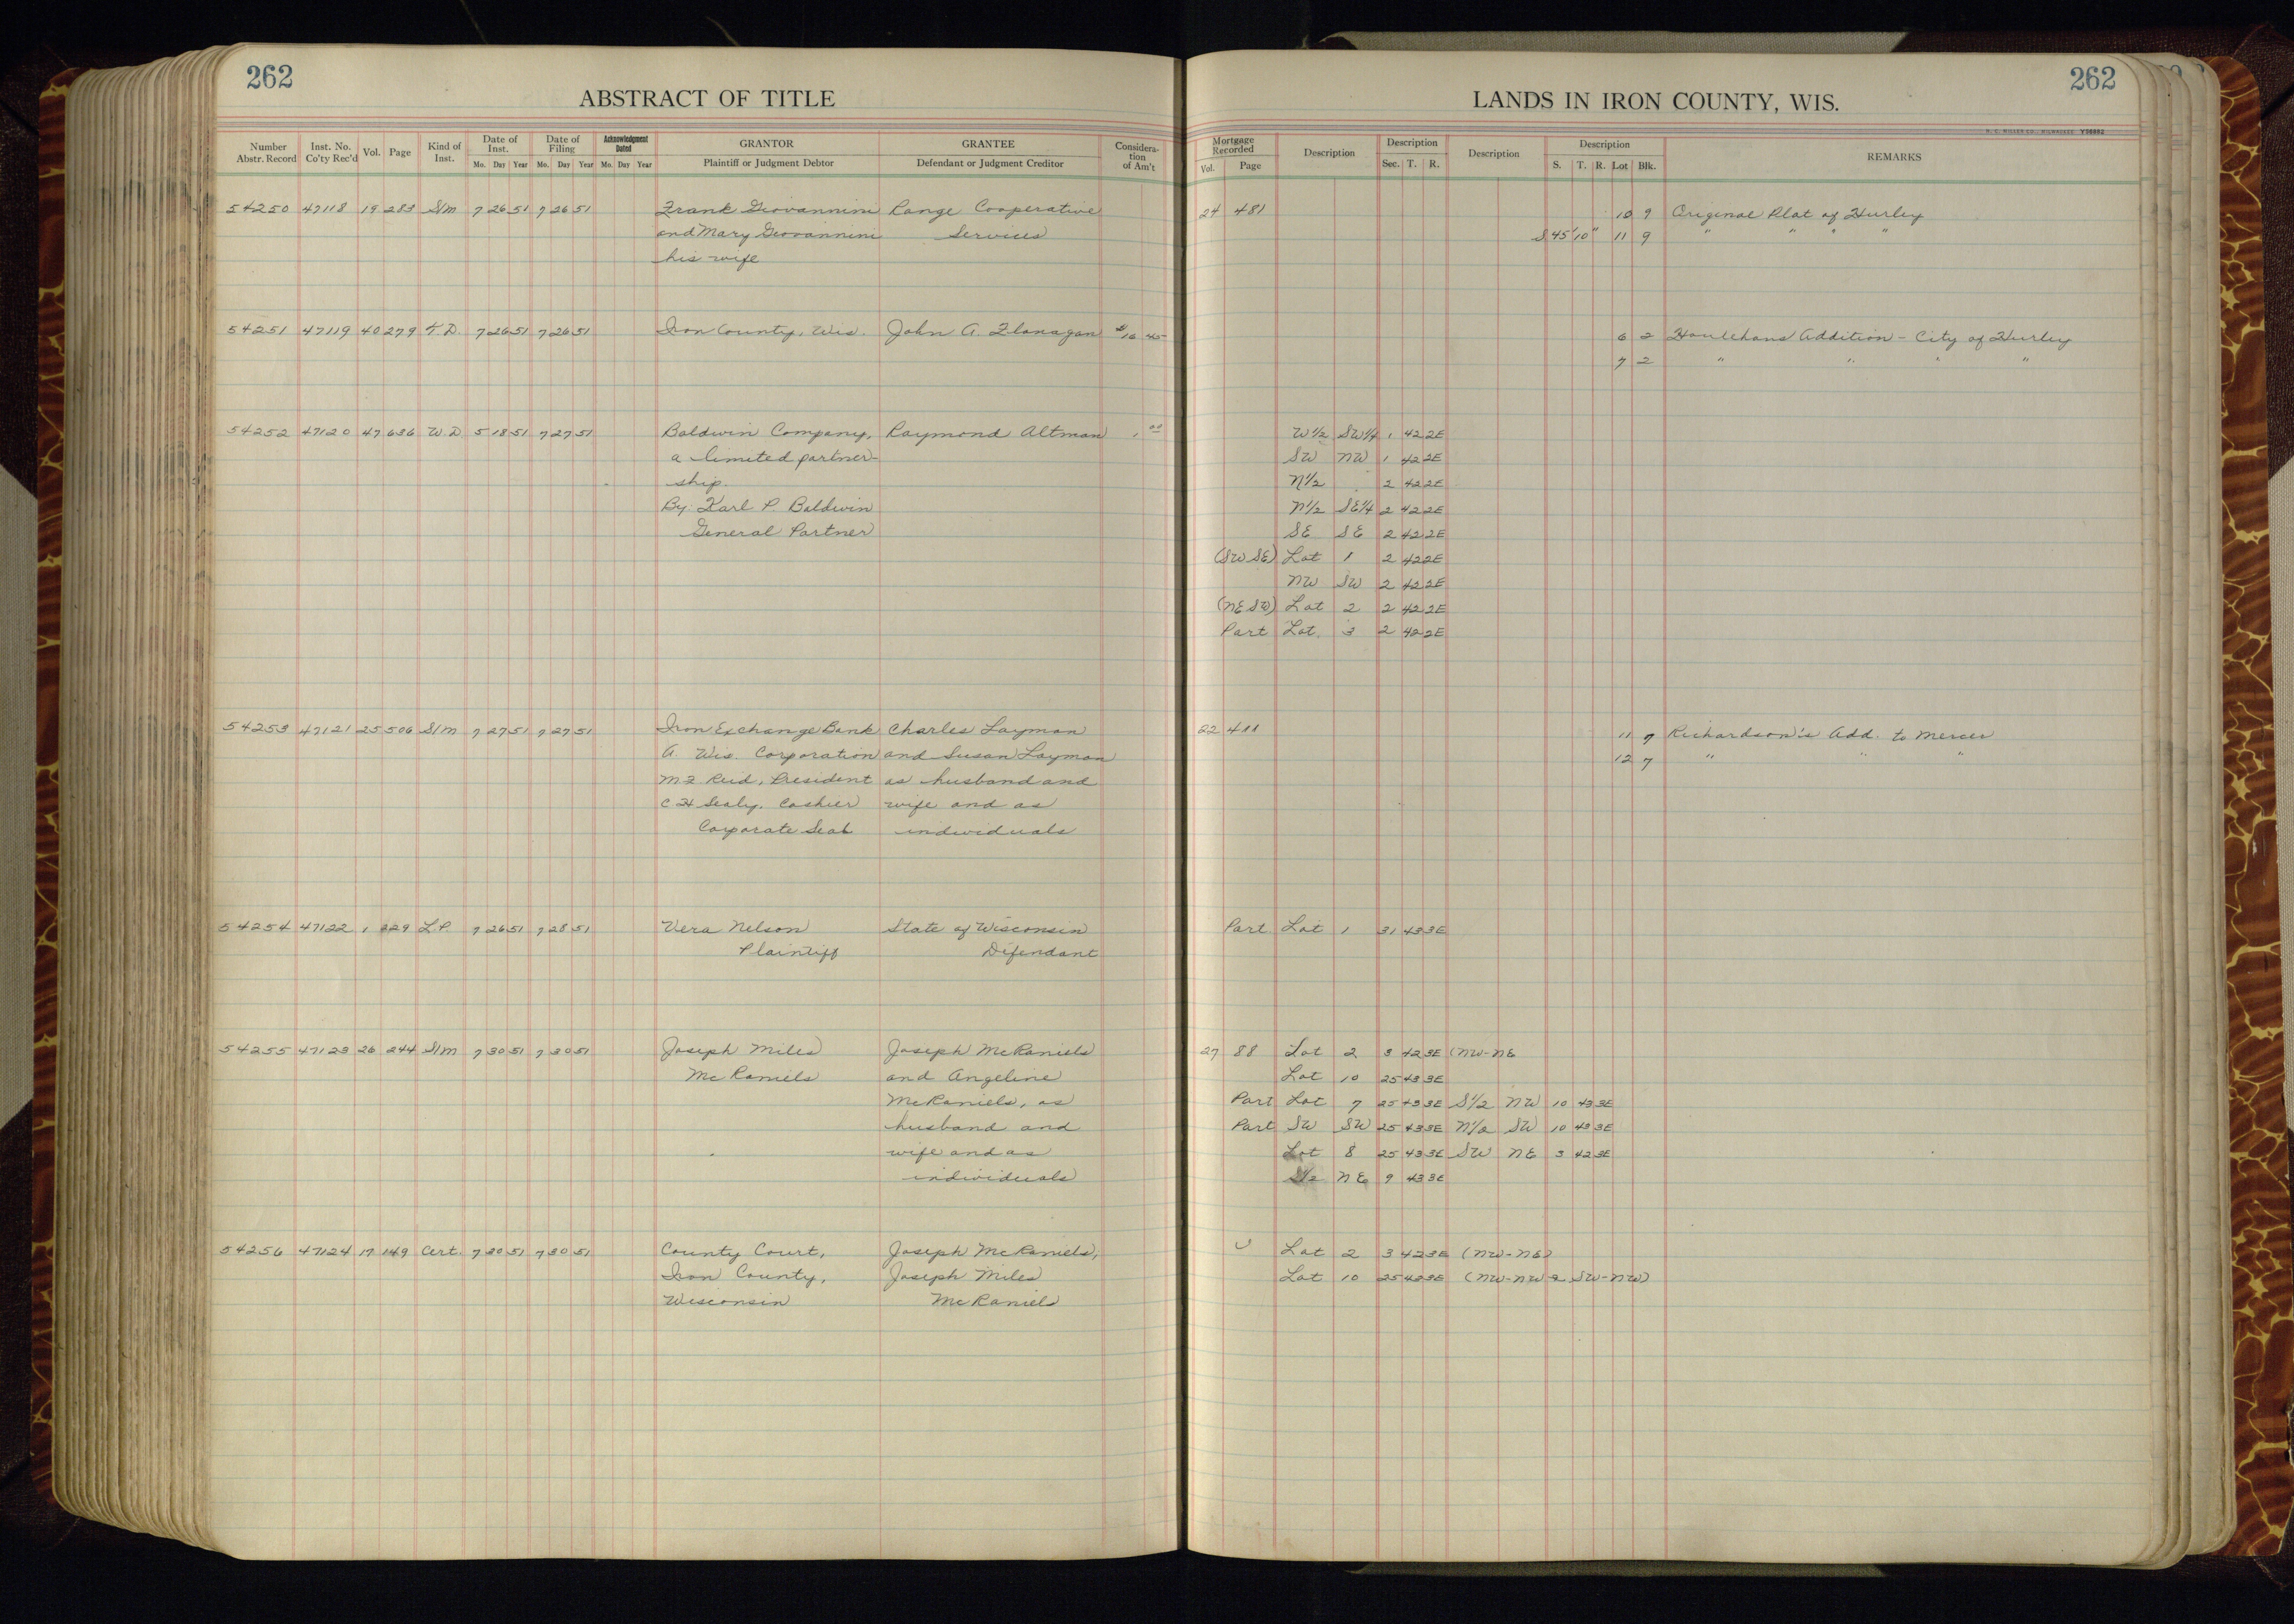 262
ABSTRACT OF TITLE
Number Abstr. Record Inst. No. Co'ty Rec'd Vol. Page Kind of Inst. Date of Inst. Mo. Day Year Date of Filing Mo. Day Year Acknowledgment Dated Mo. Day Year GRANTOR Plaintiff or Judgment Debtor GRANTEE Defendant or Judgment Creditor Considera-tion of Am't
54250 47118 19 283 S/m 7 26 51 7 26 51 Frank Giovannini Range Cooperative
and Mary Giovannini Services
his wife
54251 47119 40 279 T.D. 7 26 51 7 26 51 Iron County, Wis. John A. Flanagan $16 45
54252 47120 47 636 W.D 5 18 51 7 27 51 Baldwin Company, Raymond Altman 1 00
a limited partner-
ship.
By: Karl P. Baldwin
General Partner
54253 47121 25 506 S/m 7 27 51 7 27 51 Iron Exchange Bank Charles Layman
A. Wis. Corporation and Susan Layman
M F Reid, President as husband and
C H Sealy, Cashier wife and as
Corporate Seal individuals
54254 47122 1 229 L.P. 7 26 51 7 28 51 Vera Nelson State of Wisconsin
Plaintiff Defendant
54255 47123 26 244 S/m 7 30 51 7 30 51 Joseph Miles Joseph McRaniels
McRaniels and Angeline
McRaniels, as
husband and
wife and as
individuals
54256 47124 17 149 Cert. 7 30 51 7 30 51 County Court, Joseph McRaniels,
Iron County, Joseph Miles
Wisconsin McRaniels
262
LANDS IN IRON COUNTY, WIS.
H. C. MILLER CO., MILWAUKEE Y58952
Mortgage Recorded Vol. Page Description Description Sec. T. R. Description Description S. T. R. Lot Blk. REMARKS
24 481 10 9 Original Plat of Hurley
S 45' 10" 11 9 " " " "
6 2 Houlehans Addition - City of Hurley
7 2 " " " "
W 1/2 SW 1/4 1 42 2E
SW NW 1 42 2E
N 1/2 2 42 2E
N 1/2 SE 1/4 2 42 2E
SE SE 2 42 2E
(SW SE) Lot 1 2 42 2E
NW SW 2 42 2E
(NE SW) Lot 2 2 42 2E
Part Lot. 3 2 42 2E
22 411 11 7 Richardson's Add. to Mercer
12 7 " " "
Part. Lot 1 31 43 3E
27 88 Lot 2 3 42 3E (NW-NE
Lot 10 25 43 3E
Part Lot 7 25 43 3E S 1/2 NW 10 43 3E
Part SW SW 25 43 3E N 1/2 SW 10 43 3E
Lot 8 25 43 3E SW NE 3 42 3E
S 1/2 NE 9 43 3E
Lot 2 3 42 3E (NW-NE)
Lot 10 25 43 3E (NW-NW & SW-NW)